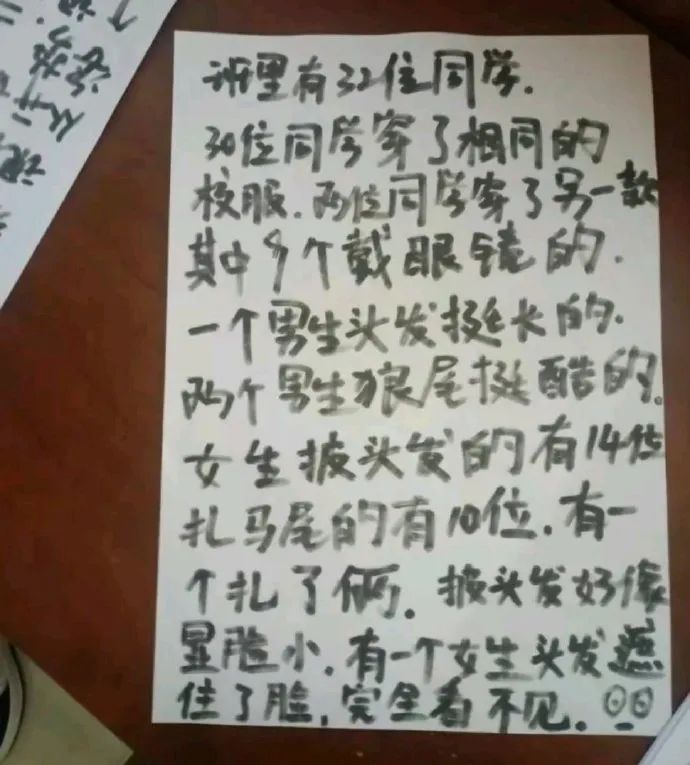 班里有32位同学.
30位同学穿了相同的
校服.两位同学穿了另一款
其中9个戴眼镜的.
一个男生头发挺长的.
两个男生狼尾挺酷的.
女生披头发的有14位
扎马尾的有10位.有一
个扎了俩.披头发好像
显脸小.有一个女生头发遮
住了脸,完全看不见.